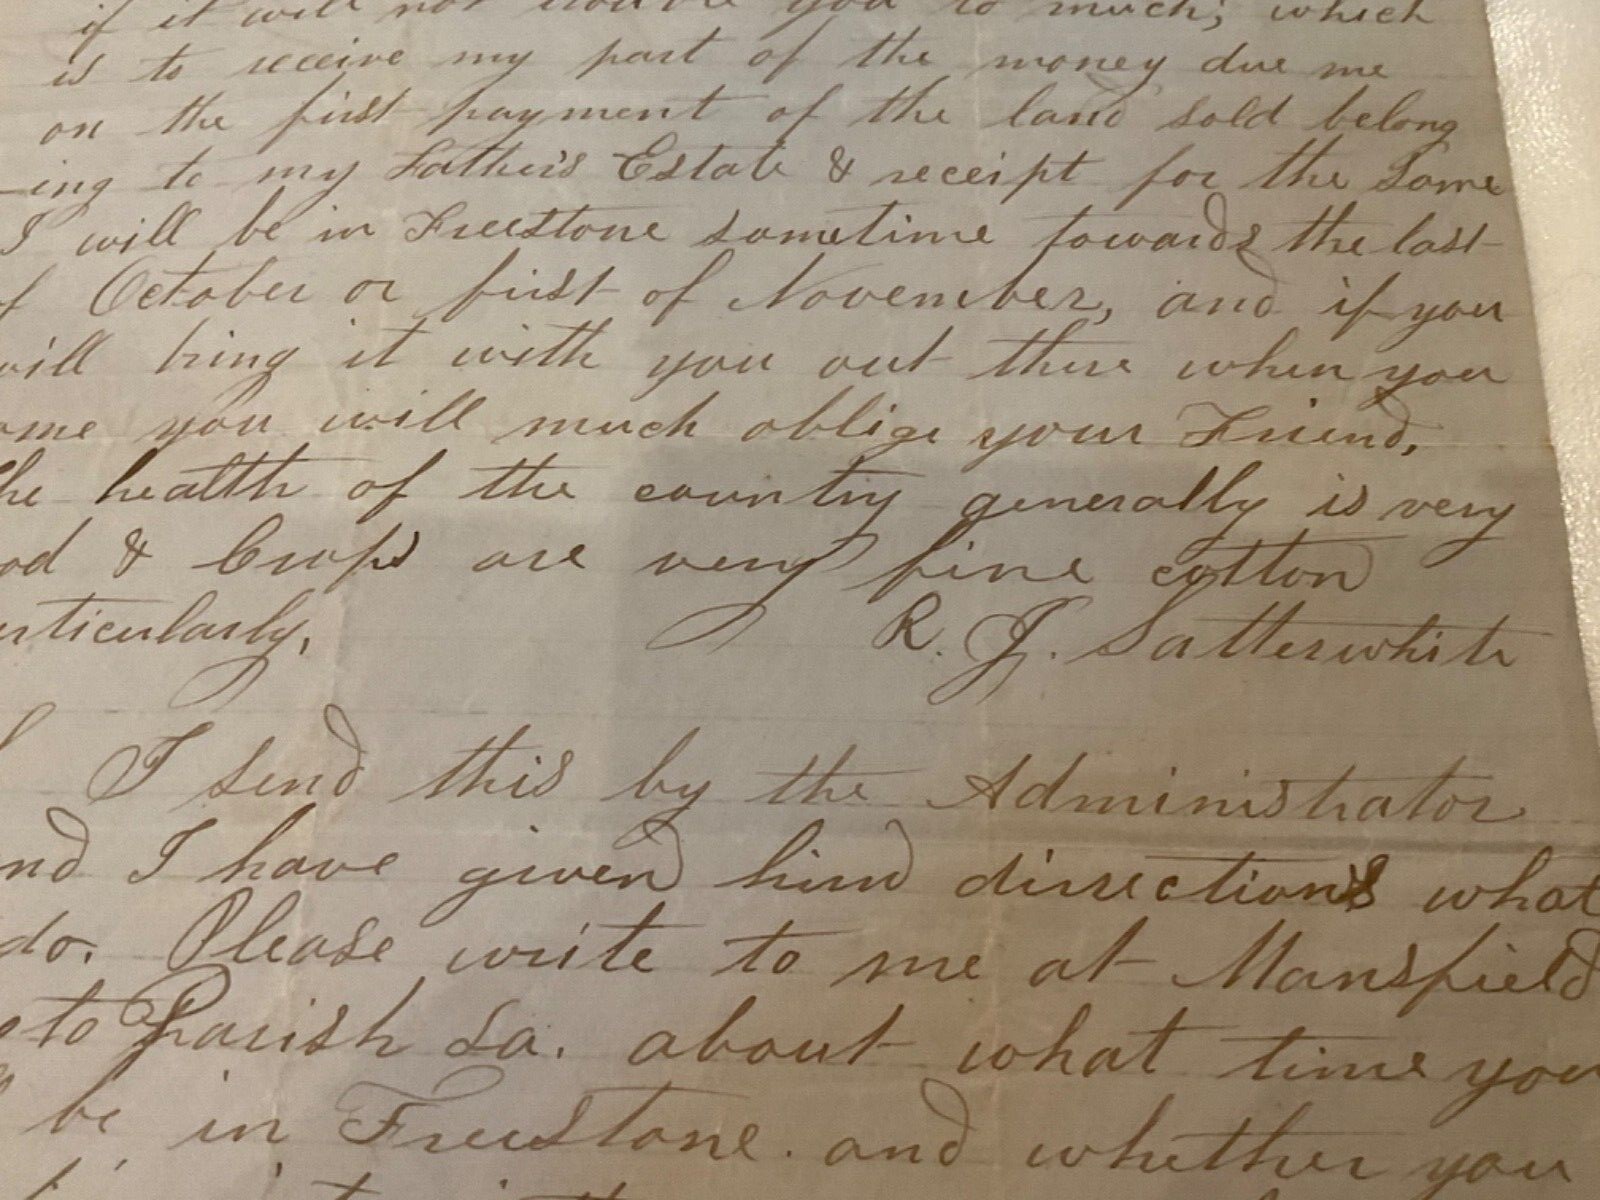 if it will not trouble you to much; which
is to receive my part of the money due me
on the first payment of the land sold belong
-ing to my Father's Estate & receipt for the Same
I will be in Freestone sometime towards the last
of October or first of November, and if you
will bring it with you out there when you
ome you will much oblige your Friend,
he health of the country generally is very
od & Crops are very fine cotton
articularly,
R. J. Satterwhite
I send this by the Administrator
nd I have given him dirrections what
do. Please write to me at Mansfield
oto Parish La. about what time you
be in Freestone. and whether you